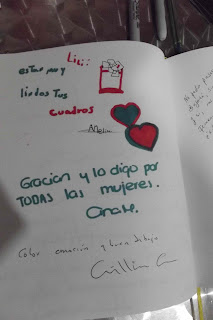 Lili:
estan muy
lindos tus
cuadros
Gracias y lo digo por
TODAS las mujeres.
Color emoción y buen dibujo